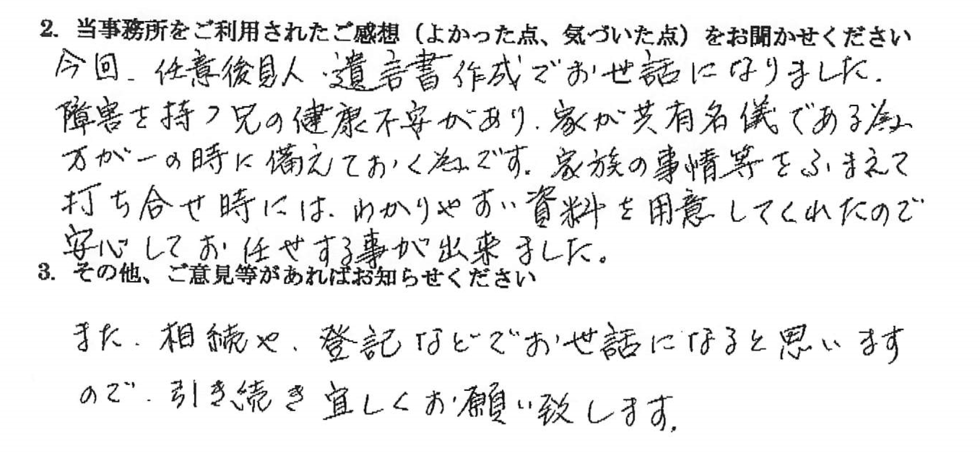 2. 当事務所をご利用されたご感想（よかった点、気づいた点）をお聞かせください
今回、任意後見人・遺言書作成でお世話になりました。
障害を持つ兄の健康不安があり、家が共有名儀である為、
万が一の時に備えておく為です。家族の事情等をふまえて
打ち合せ時には、わかりやすい資料を用意してくれたので
安心してお任せする事が出来ました。
3. その他、ご意見等があればお知らせください
また、相続や、登記などでお世話になると思います
ので、引き続き宜しくお願い致します。